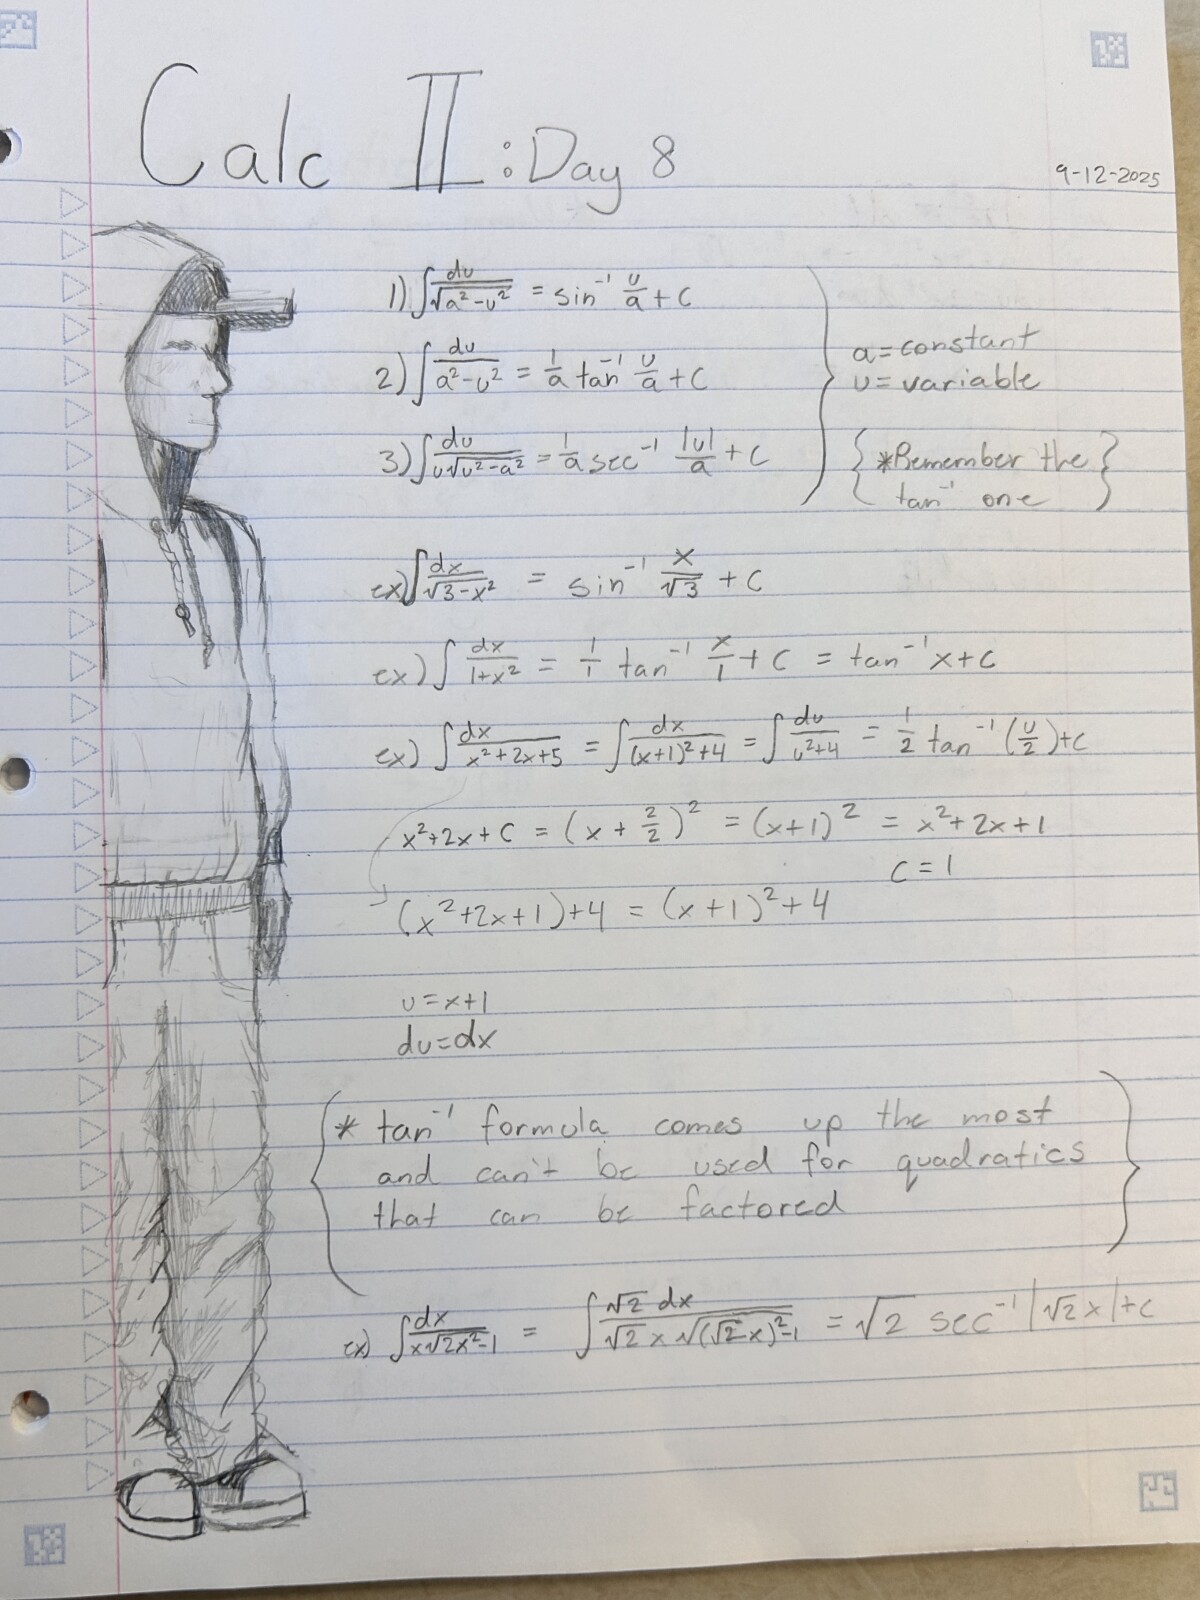 Calc II: Day 8
9-12-2025
1) ∫ du/√(a²-u²) = sin⁻¹ u/a + C
2) ∫ du/(a²-u²) = 1/a tan⁻¹ u/a + C
3) ∫ du/(u√(u²-a²)) = 1/a sec⁻¹ |u|/a + C
a = constant
u = variable
{*Remember the
tan⁻¹ one}
ex) ∫ dx/√(3-x²) = sin⁻¹ x/√3 + C
ex) ∫ dx/(1+x²) = 1/1 tan⁻¹ x/1 + C = tan⁻¹ x + C
ex) ∫ dx/(x²+2x+5) = ∫ dx/((x+1)²+4) = ∫ du/(u²+4) = 1/2 tan⁻¹ (u/2) + C
x²+2x+C = (x + 2/2)² = (x+1)² = x²+2x+1
C = 1
(x²+2x+1)+4 = (x+1)²+4
u = x+1
du = dx
{* tan⁻¹ formula comes up the most
and can't be used for quadratics
that can be factored}
ex) ∫ dx/(x√(2x²-1)) = ∫ √2 dx/(√2 x √((√2 x)²-1)) = √2 sec⁻¹ |√2 x| + C